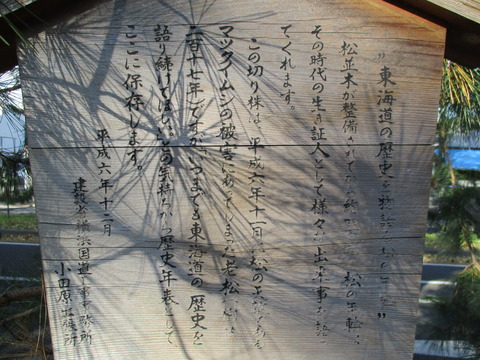 "東海道の歴史を物語
松並木が整備されて 松の年輪は、
その時代の生き証人として様々な出来事を語っ
てくれます。
この切り株は、平成六年十一月、松の天敵である
マツクイムシの被害にあってしまった老松
二百十七年)ですが、いつまでも東海道の歴史を
語り続けてほしいとの気持ちから歴史年表として
ここに保存します。
平成六年十二月
建設省横浜国道工事事務所
小田原出張所